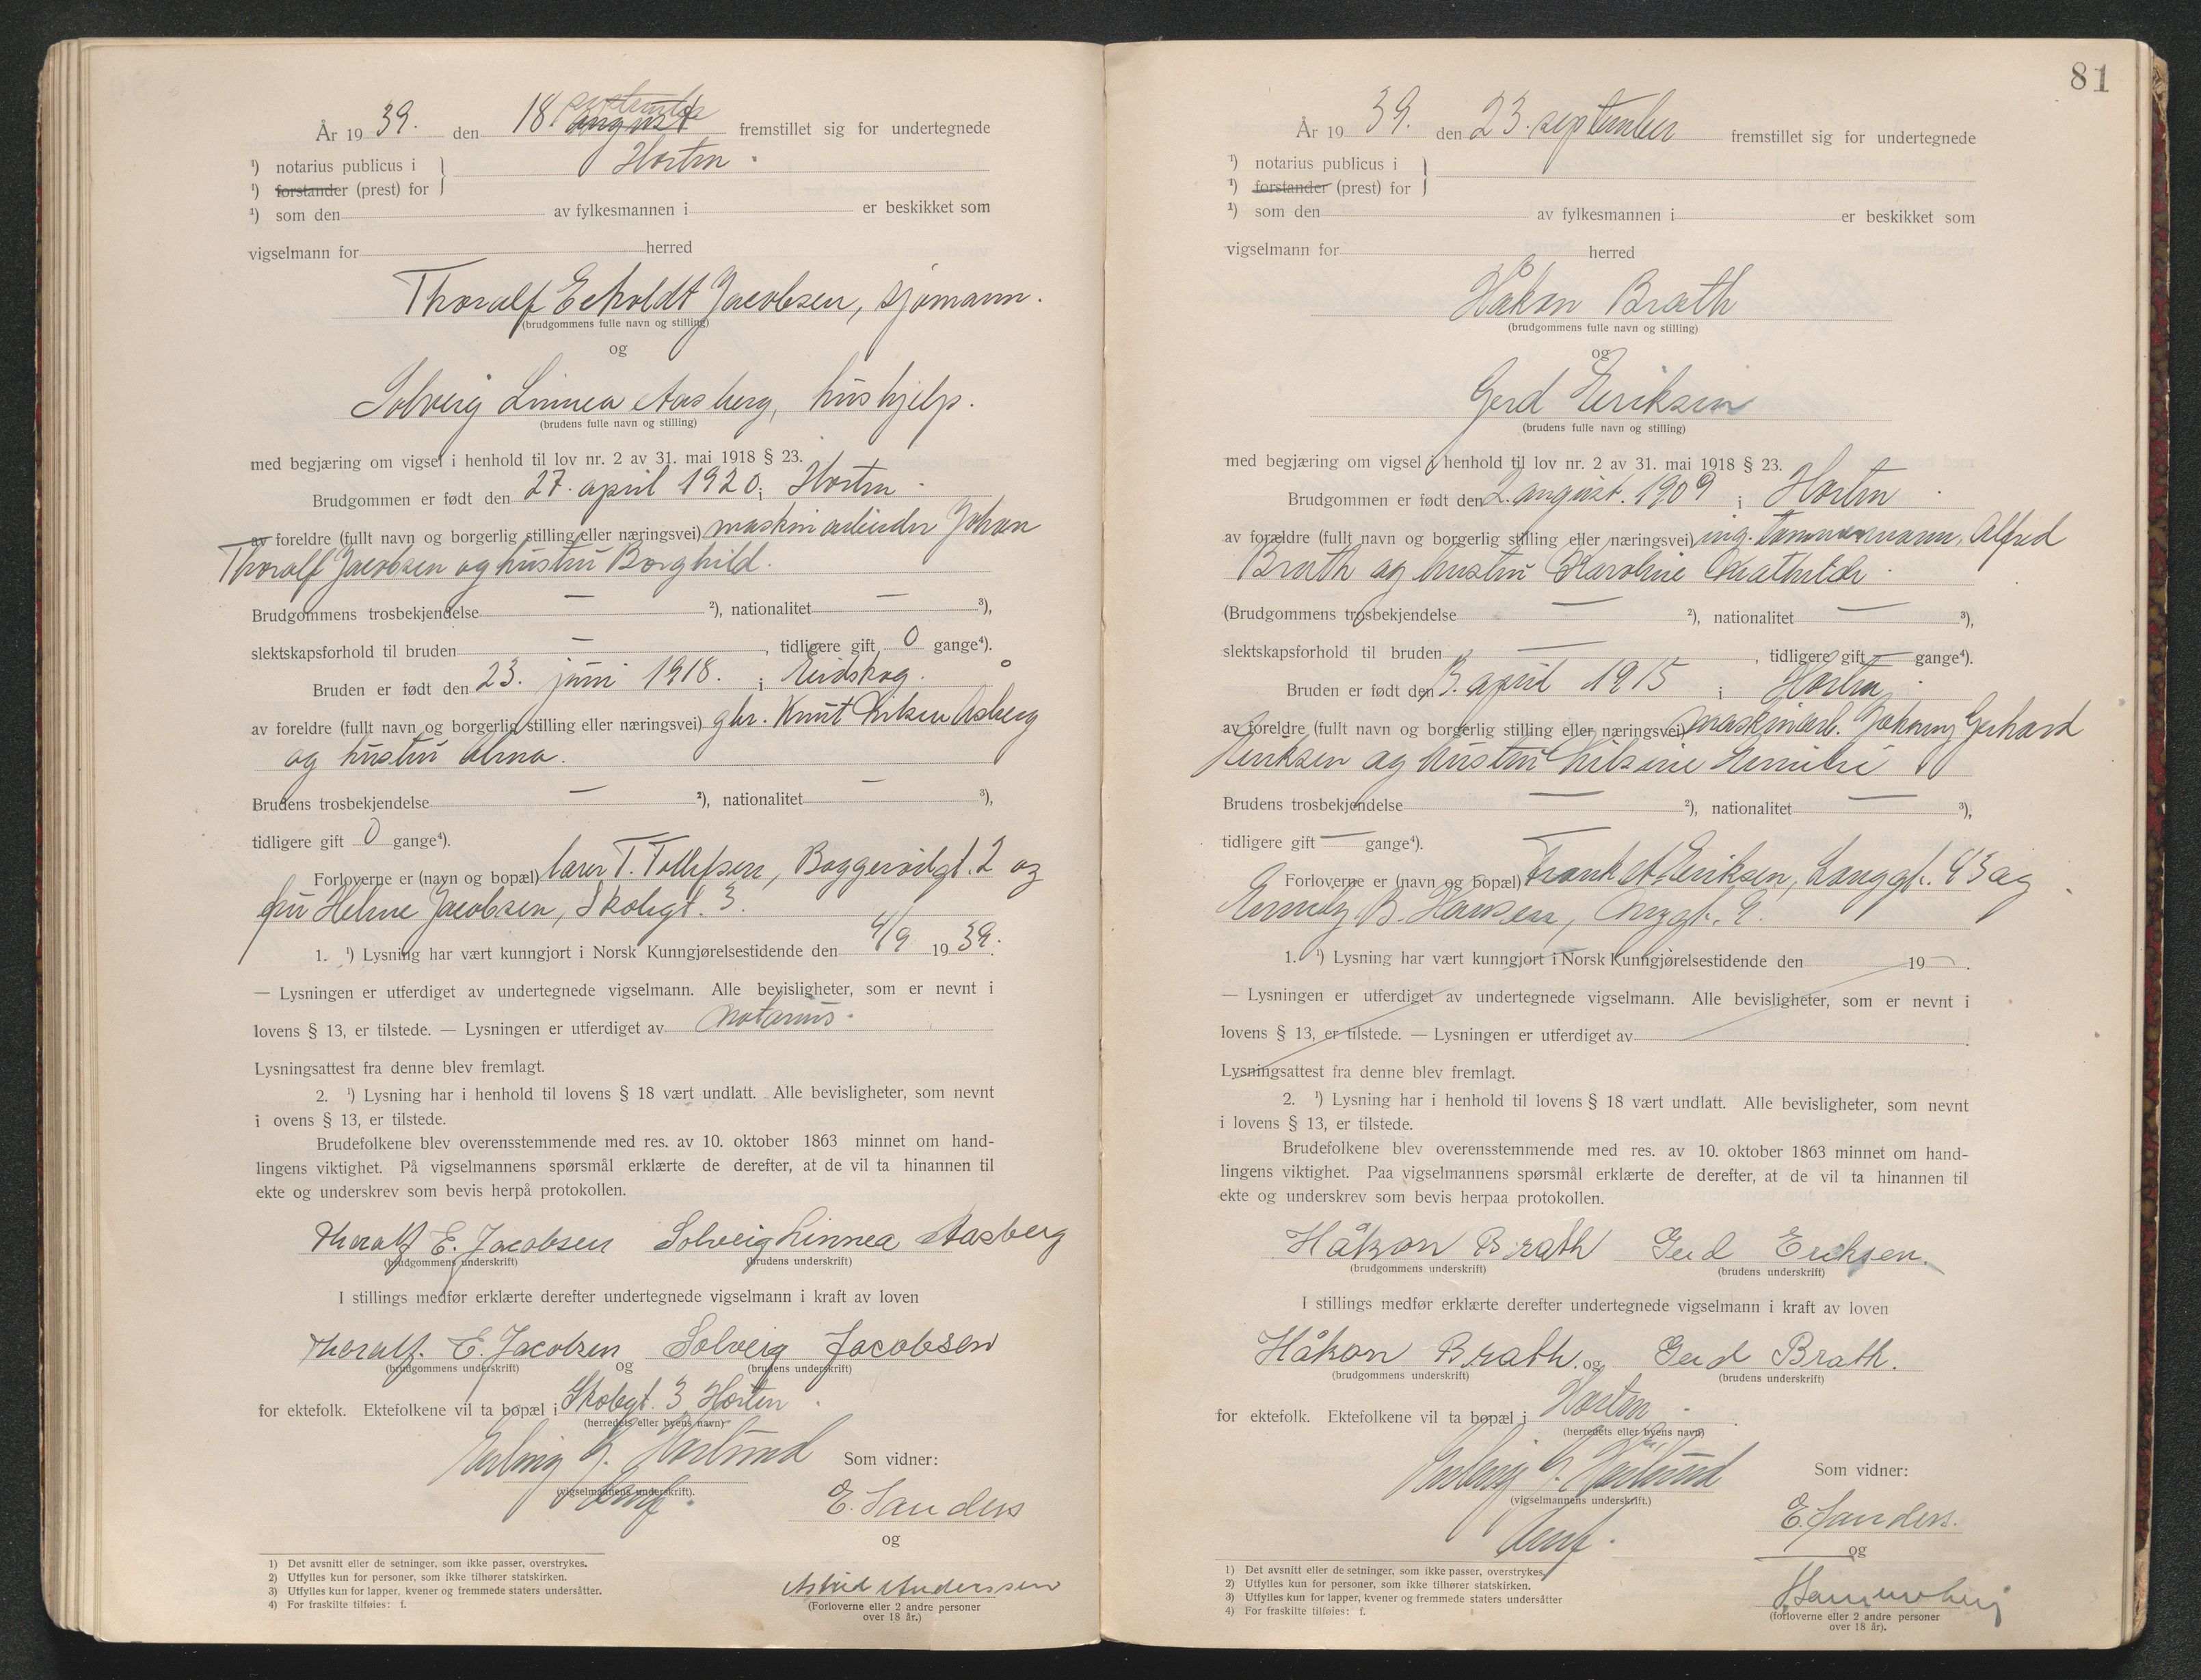 År 19 39. den 18 september august fremstillet sig for undertegnede
¹) notarius publicus i Horten.
¹) forstander (prest) for
¹) som den av fylkesmannen i er beskikket som
vigselmann for herred
Thoralf Echoldt Jacobsen, sjømann.
(brudgommens fulle navn og stilling)
og
Solveig Linnea Aasberg, hushjelp.
(brudens fulle navn og stilling)
med begjæring om vigsel i henhold til lov nr. 2 av 31. mai 1918 § 23.
Brudgommen er født den 27. april 1920 i Horten.
av foreldre (fullt navn og borgerlig stilling eller næringsvei) maskinarbeider Johan
Thoralf Jacobsen og hustru Borghild.
Brudgommens trosbekjendelse — ²), nationalitet — ³),
slektskapsforhold til bruden — , tidligere gift 0 gange⁴).
Bruden er født den 23. juni 1918. i Eidskog.
av foreldre (fullt navn og borgerlig stilling eller næringsvei) gbr. Knut Nilsen Åsberg
og hustru Alma.
Brudens trosbekjendelse — ²), nationalitet — ³),
tidligere gift 0 gange⁴).
Forloverne er (navn og bopæl) lærer T. Tollefsen, Baggerødgt. 2 og
fru Helene Jacobsen, Skolegt. 3.
1. ¹) Lysning har vært kunngjort i Norsk Kunngjørelsestidende den 4/9 19 39.
— Lysningen er utferdiget av undertegnede vigselmann. Alle bevisligheter, som er nevnt i
lovens § 13, er tilstede. — Lysningen er utferdiget av notarius.
Lysningsattest fra denne blev fremlagt.
2. ¹) Lysning har i henhold til lovens § 18 vært undlatt. Alle bevisligheter, som nevnt
i ovens § 13, er tilstede.
Brudefolkene blev overensstemmende med res. av 10. oktober 1863 minnet om hand-
lingens viktighet. På vigselmannens spørsmål erklærte de derefter, at de vil ta hinannen til
ekte og underskrev som bevis herpå protokollen.
Thoralf E. Jacobsen Solveig Linnea Aasberg
(brudgommens underskrift) (brudens underskrift)
I stillings medfør erklærte derefter undertegnede vigselmann i kraft av loven
Thoralf. E. Jacobsen og Solveig Jacobsen
(brudgommens underskrift) (brudens underskrift)
for ektefolk. Ektefolkene vil ta bopæl i Skolegt. 3, Horten.
(herredets eller byens navn)
Erling G. Haslund
(vigselmannens underskrift).
Som vidner:
E. Sanders
og
Astrid Anderssen
(Forloverne eller 2 andre personer
over 18 år.)
1) Det avsnitt eller de setninger, som ikke passer, overstrykes.
2) Utfylles kun for personer, som ikke tilhører statskirken.
3) Utfylles kun for lapper, kvener og fremmede staters undersåtter.
4) For fraskilte tilføies: f.
81
År 19 39. den 23. september fremstillet sig for undertegnede
¹) notarius publicus i
¹) forstander (prest) for
¹) som den av fylkesmannen i er beskikket som
vigselmann for herred
Håkon Brath
(brudgommens fulle navn og stilling)
og
Gerd Eriksen
(brudens fulle navn og stilling)
med begjæring om vigsel i henhold til lov nr. 2 av 31. mai 1918 § 23.
Brudgommen er født den 2. august. 1909 i Horten.
av forældre (fullt navn og borgerlig stilling eller næringsvei) tømmermann, Alfred
Brath og hustru Karoline Mathilde.
(Brudgommens trosbekjendelse — ²), nationalitet — ³),
slektskapsforhold til bruden — , tidligere gift — gange⁴).
Bruden er født den 13. april 1915 i Horten.
av foreldre (fullt navn og borgerlig stilling eller næringsvei) maskinarb. Johnny Gerhard
Eriksen og hustru Nilsine
Brudens trosbekjendelse — ²), nationalitet — ³),
tidligere gift — gange⁴).
Forloverne er (navn og bopæl) Frank A. Eriksen, Langgt. 43 og
Emmily B. Hansen,
1. ¹) Lysning har vært kunngjort i Norsk Kunngjørelsestidende den 19 — .
— Lysningen er utferdiget av undertegnede vigselmann. Alle bevisligheter, som er nevnt i
lovens § 13, er tilstede. — Lysningen er utferdiget av
Lysningsattest fra denne blev fremlagt.
2. ¹) Lysning har i henhold til lovens § 18 vært undlatt. Alle bevisligheter, som nevnt
i lovens § 13, er tilstede.
Brudefolkene blev overensstemmende med res. av 10. oktober 1863 minnet om hand-
lingens viktighet. Paa vigselmannens spørsmål erklærte de derefter, at de vil ta hinannen til
ekte og underskrev som bevis herpaa protokollen.
Håkon Brath Gerd Eriksen.
(brudgommens underskrift) (brudens underskrift)
I stillings medfør erklærte derefter undertegnede vigselmann i kraft av loven
Håkon Brath. og Gerd Brath.
(brudgommens underskrift) (brudens underskrift)
for ektefolk. Ektefolkene vil ta bopæl i Horten.
(herredets eller byens navn)
Erling G. Haslund
(vigselmannens underskrift.)
Som vidner:
E. Sanders.
og
(forloverne eller 2 andre personer
over 18 år).
1) Det avsnitt eller de setninger, som ikke passer, overstrykes.
2) Utfylles kun for personer, som ikke tilhører statskirken.
3) Utfylles kun for lapper, kvener og fremmede staters undersåtter
4) For fraskilte tilføies: f.